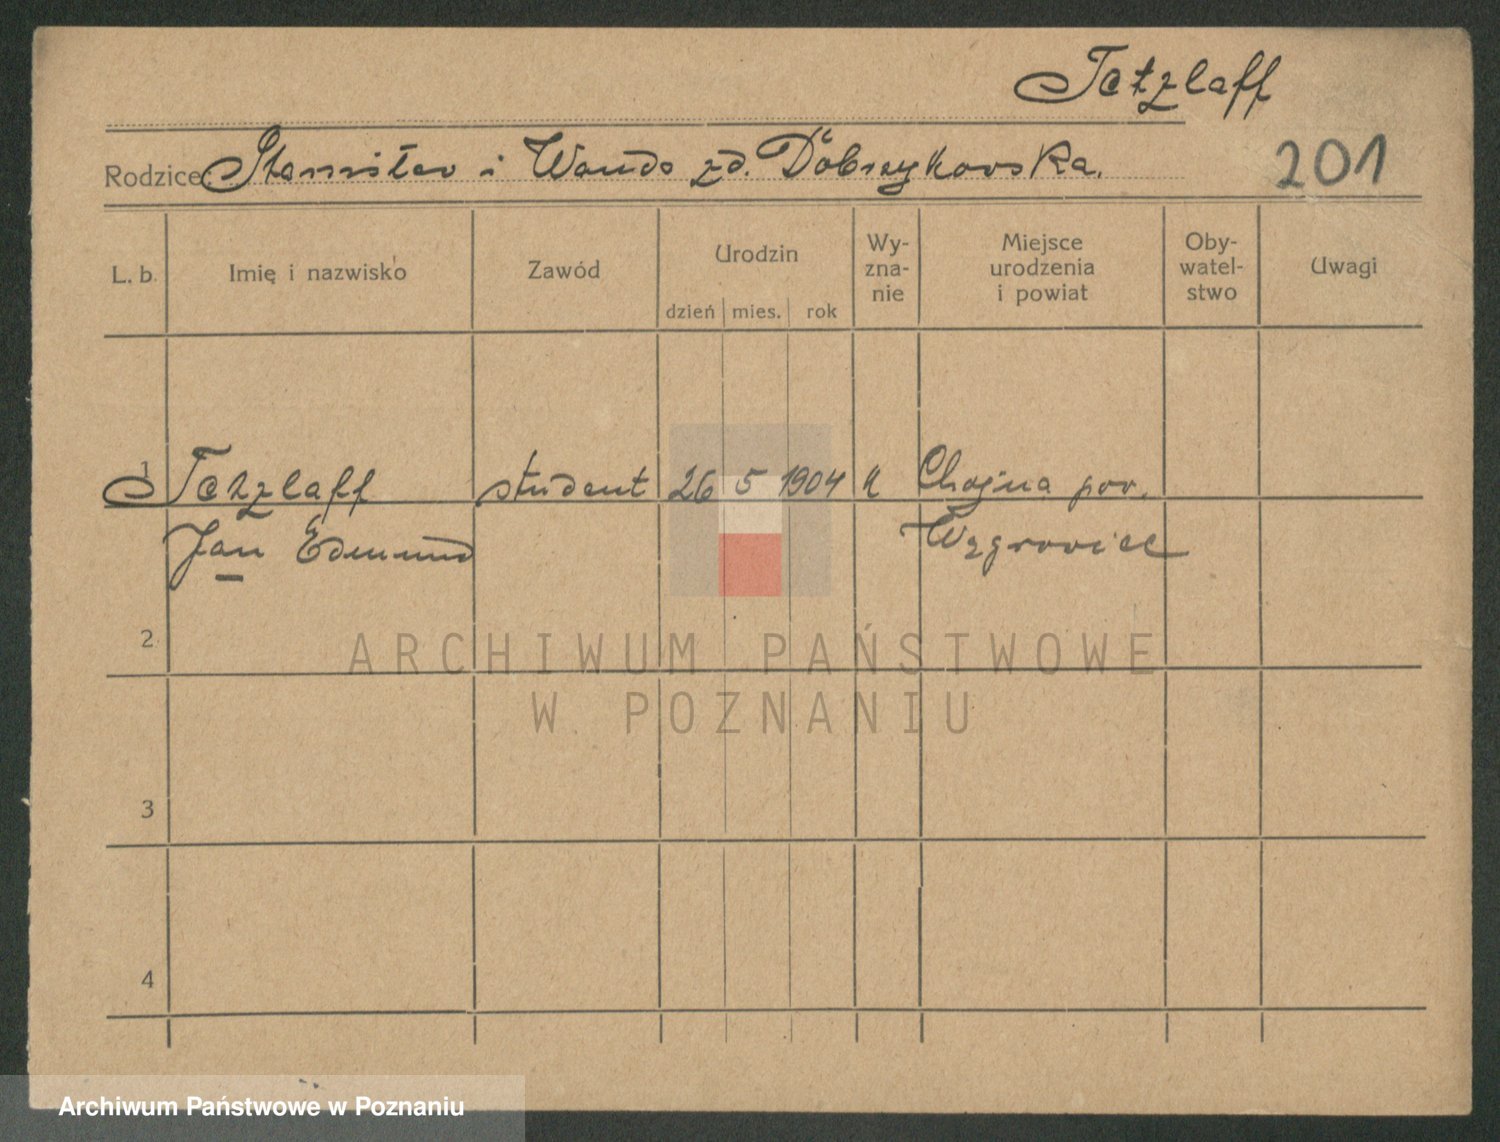 Tetzlaff
Rodzice: Stanisław i Wanda zd. Dobrzykowska.
201
L. b. Imię i nazwisko Zawód Urodzin dzień mies. rok Wy-zna-nie Miejsce urodzenia i powiat Oby-watel-stwo Uwagi
1 Tetzlaff student 26 5 1904 k Chojna pow.
Jan Edmund Wągrowiec
2
ARCHIWUM PAŃSTWOWE
W POZNANIU
3
4
Archiwum Państwowe w Poznaniu